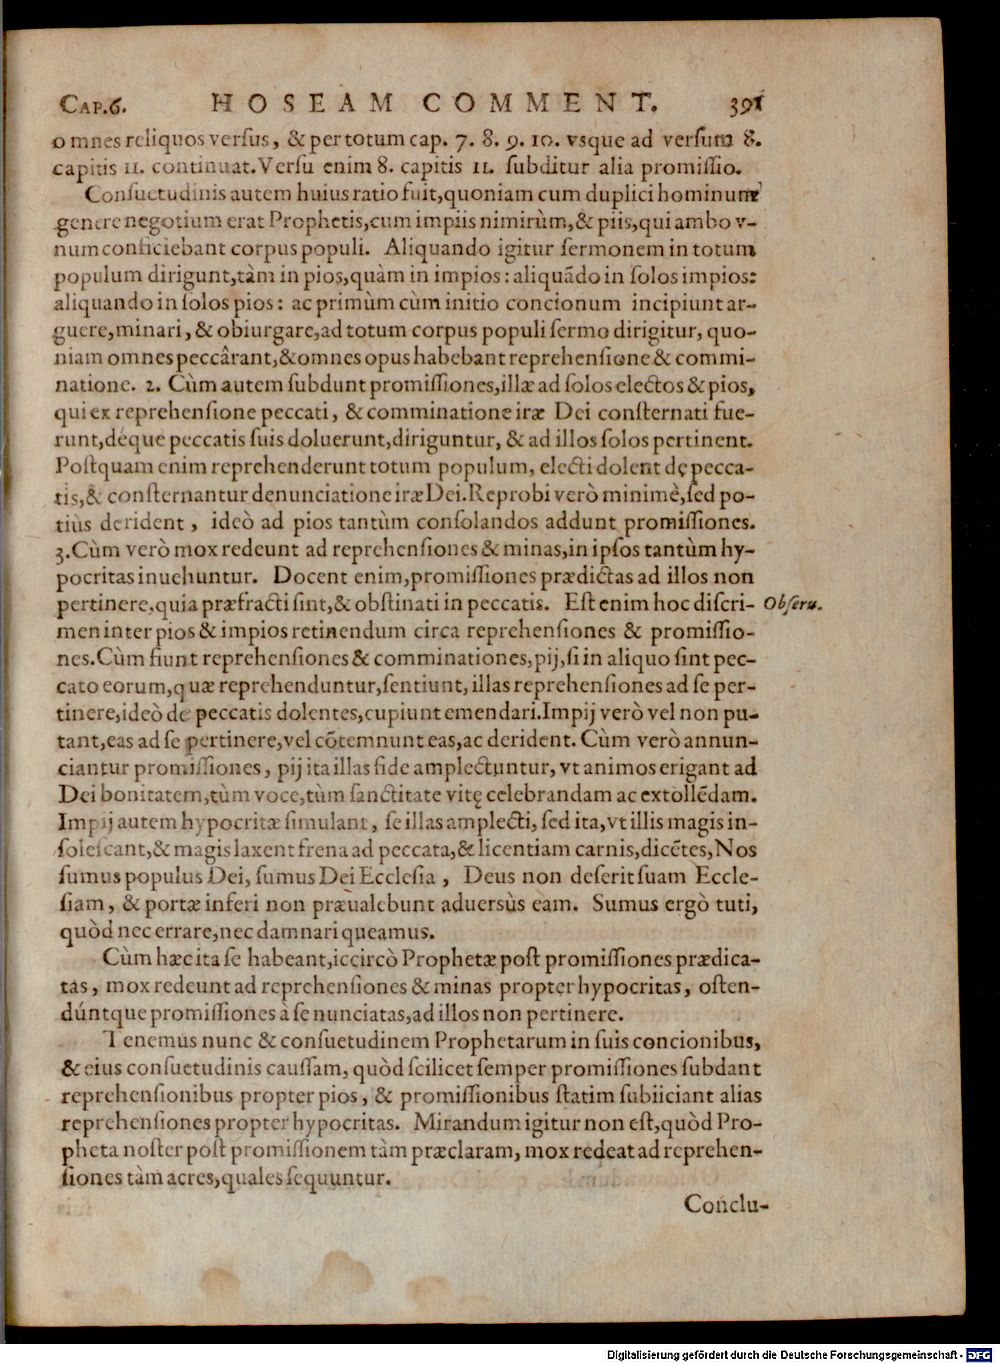 CAP.6. HOSEAM COMMENT. 391
omnes reliquos versus, & per totum cap. 7. 8. 9. 10. vsque ad versum 8.
capitis 11. continuat. Versu enim 8. capitis 11. subditur alia promissio.
Consuetudinis autem huius ratio fuit, quoniam cum duplici hominum
genere negotium erat Prophetis, cum impiis nimirùm, & piis, qui ambo v-
num conficiebant corpus populi. Aliquando igitur sermonem in totum
populum dirigunt, tàm in pios, quàm in impios: aliquãdo in solos impios:
aliquando in solos pios: ac primùm cùm initio concionum incipiunt ar-
guere, minari, & obiurgare, ad totum corpus populi sermo dirigitur, quo-
niam omnes peccârant, & omnes opus habebant reprehensione & commi-
natione. 2. Cùm autem subdunt promissiones, illæ ad solos electos & pios,
qui ex reprehensione peccati, & comminatione iræ Dei consternati fue-
runt, déque peccatis suis doluerunt, diriguntur, & ad illos solos pertinent.
Postquam enim reprehenderunt totum populum, electi dolent de pecca-
tis, & consternantur denunciatione iræ Dei. Reprobi verò minimè, sed po-
tiùs derident, ideò ad pios tantùm consolandos addunt promissiones.
3. Cùm verò mox redeunt ad reprehensiones & minas, in ipsos tantùm hy-
pocritas inuehuntur. Docent enim, promissiones prædictas ad illos non
pertinere, quia præfracti sint, & obstinati in peccatis. Est enim hoc discri- Obseru.
men inter pios & impios retinendum circa reprehensiones & promissio-
nes. Cùm fiunt reprehensiones & comminationes, pij, si in aliquo sint pec-
cato eorum, quæ reprehenduntur, sentiunt, illas reprehensiones ad se per-
tinere, ideò de peccatis dolentes, cupiunt emendari. Impij verò vel non pu-
tant, eas ad se pertinere, vel cõtemnunt eas, ac derident. Cùm verò annun-
ciantur promissiones, pij ita illas fide amplectuntur, vt animos erigant ad
Dei bonitatem, tùm voce, tùm sanctitate vitę celebrandam ac extollẽdam.
Impij autem hypocritæ simulant, se illas amplecti, sed ita, vt illis magis in-
solescant, & magis laxent frena ad peccata, & licentiam carnis, dicẽtes, Nos
sumus populus Dei, sumus Dei Ecclesia, Deus non deserit suam Eccle-
siam, & portæ inferi non præualebunt aduersùs eam. Sumus ergò tuti,
quòd nec errare, nec damnari queamus.
Cùm hæc ita se habeant, iccircò Prophetæ post promissiones prædica-
tas, mox redeunt ad reprehensiones & minas propter hypocritas, osten-
dúntque promissiones à se nunciatas, ad illos non pertinere.
Tenemus nunc & consuetudinem Prophetarum in suis concionibus,
& eius consuetudinis caussam, quòd scilicet semper promissiones subdant
reprehensionibus propter pios, & promissionibus statim subiiciant alias
reprehensiones propter hypocritas. Mirandum igitur non est, quòd Pro-
pheta noster post promissionem tàm præclaram, mox redeat ad reprehen-
siones tàm acres, quales sequuntur.
Conclu-
Digitalisierung gefördert durch die Deutsche Forschungsgemeinschaft - DFG